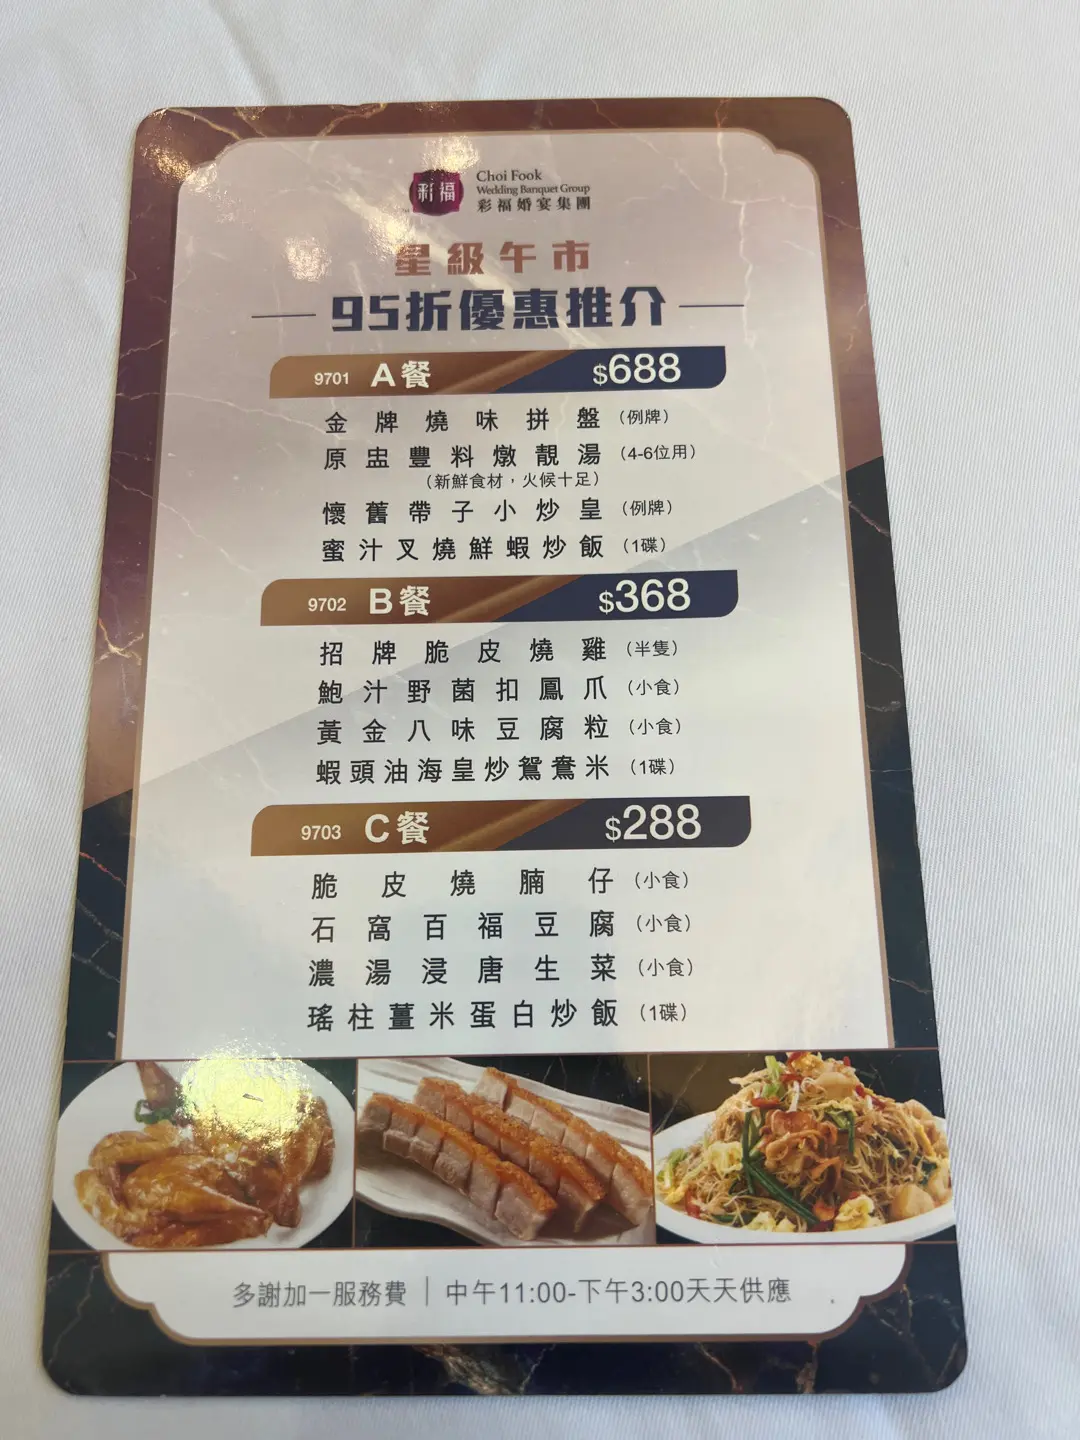 彩福
Choi Fook
Wedding Banquet Group
彩福婚宴集團
星級午市
95折優惠推介
9701 A餐 $688
金牌燒味拼盤（例牌）
原盅豐料燉靚湯（4-6位用）
（新鮮食材，火候十足）
懷舊帶子小炒皇（例牌）
蜜汁叉燒鮮蝦炒飯（1碟）
9702 B餐 $368
招牌脆皮燒雞（半隻）
鮑汁野菌扣鳳爪（小食）
黃金八味豆腐粒（小食）
蝦頭油海皇炒鴛鴦米（1碟）
9703 C餐 $288
脆皮燒腩仔（小食）
石窩百福豆腐（小食）
濃湯浸唐生菜（小食）
瑤柱薑米蛋白炒飯（1碟）
多謝加一服務費｜中午11:00-下午3:00天天供應